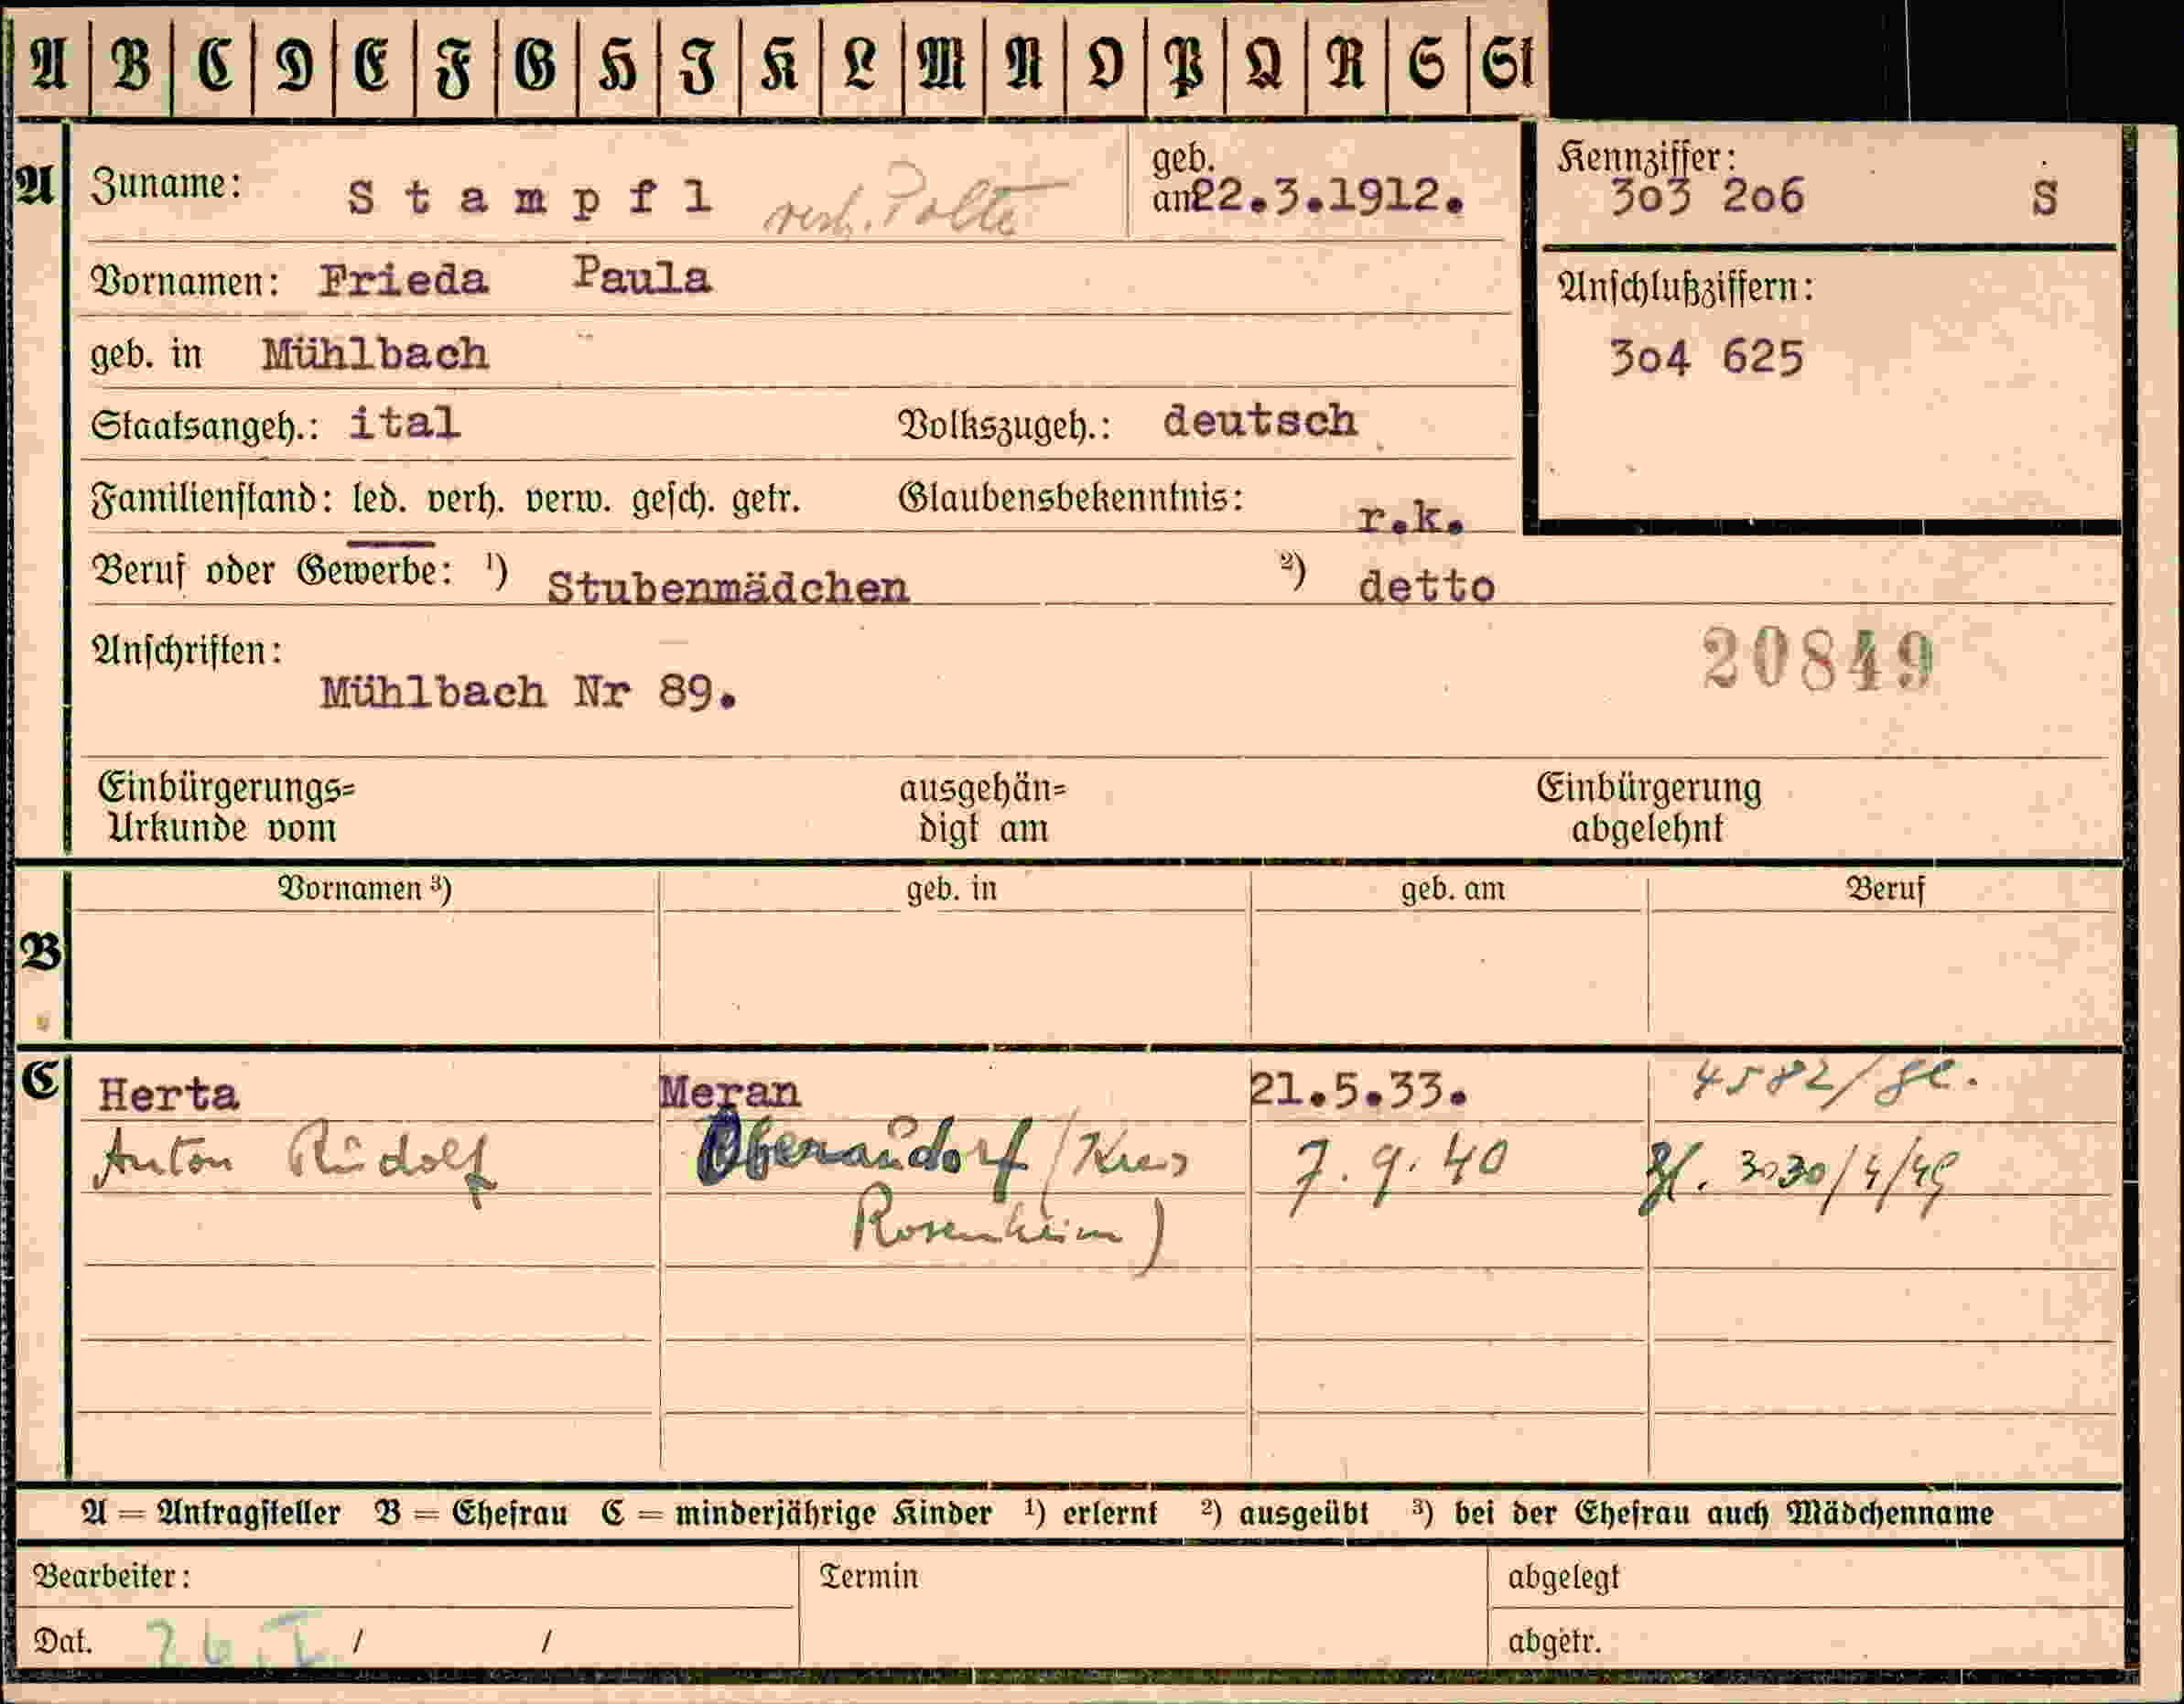 A B C D E F G H I K L M N O P Q R S St
A Zuname: Stampfl verh. Polte geb. am 22.3.1912. Kennziffer: 303 206 S
Vornamen: Frieda Paula Anschlußziffern:
geb. in Mühlbach 304 625
Staatsangeh.: ital Volkszugeh.: deutsch
Familienstand: led. verh. verw. gesch. getr. Glaubensbekenntnis: r.k.
Beruf oder Gewerbe: ¹) Stubenmädchen ²) detto
Anschriften: 20849
Mühlbach Nr 89.
Einbürgerungs= ausgehän= Einbürgerung
Urkunde vom digt am abgelehnt
Vornamen ³) geb. in geb. am Beruf
B
C Herta Meran 21.5.33. 4582/
Anton Rudolf Oberaudorf (Kreis 7.9.40 Zl. 3030/4/49
Rosenheim)
A = Antragsteller B = Ehefrau C = minderjährige Kinder ¹) erlernt ²) ausgeübt ³) bei der Ehefrau auch Mädchenname
Bearbeiter: Termin abgelegt
Dat. 26.I. / / abgetr.